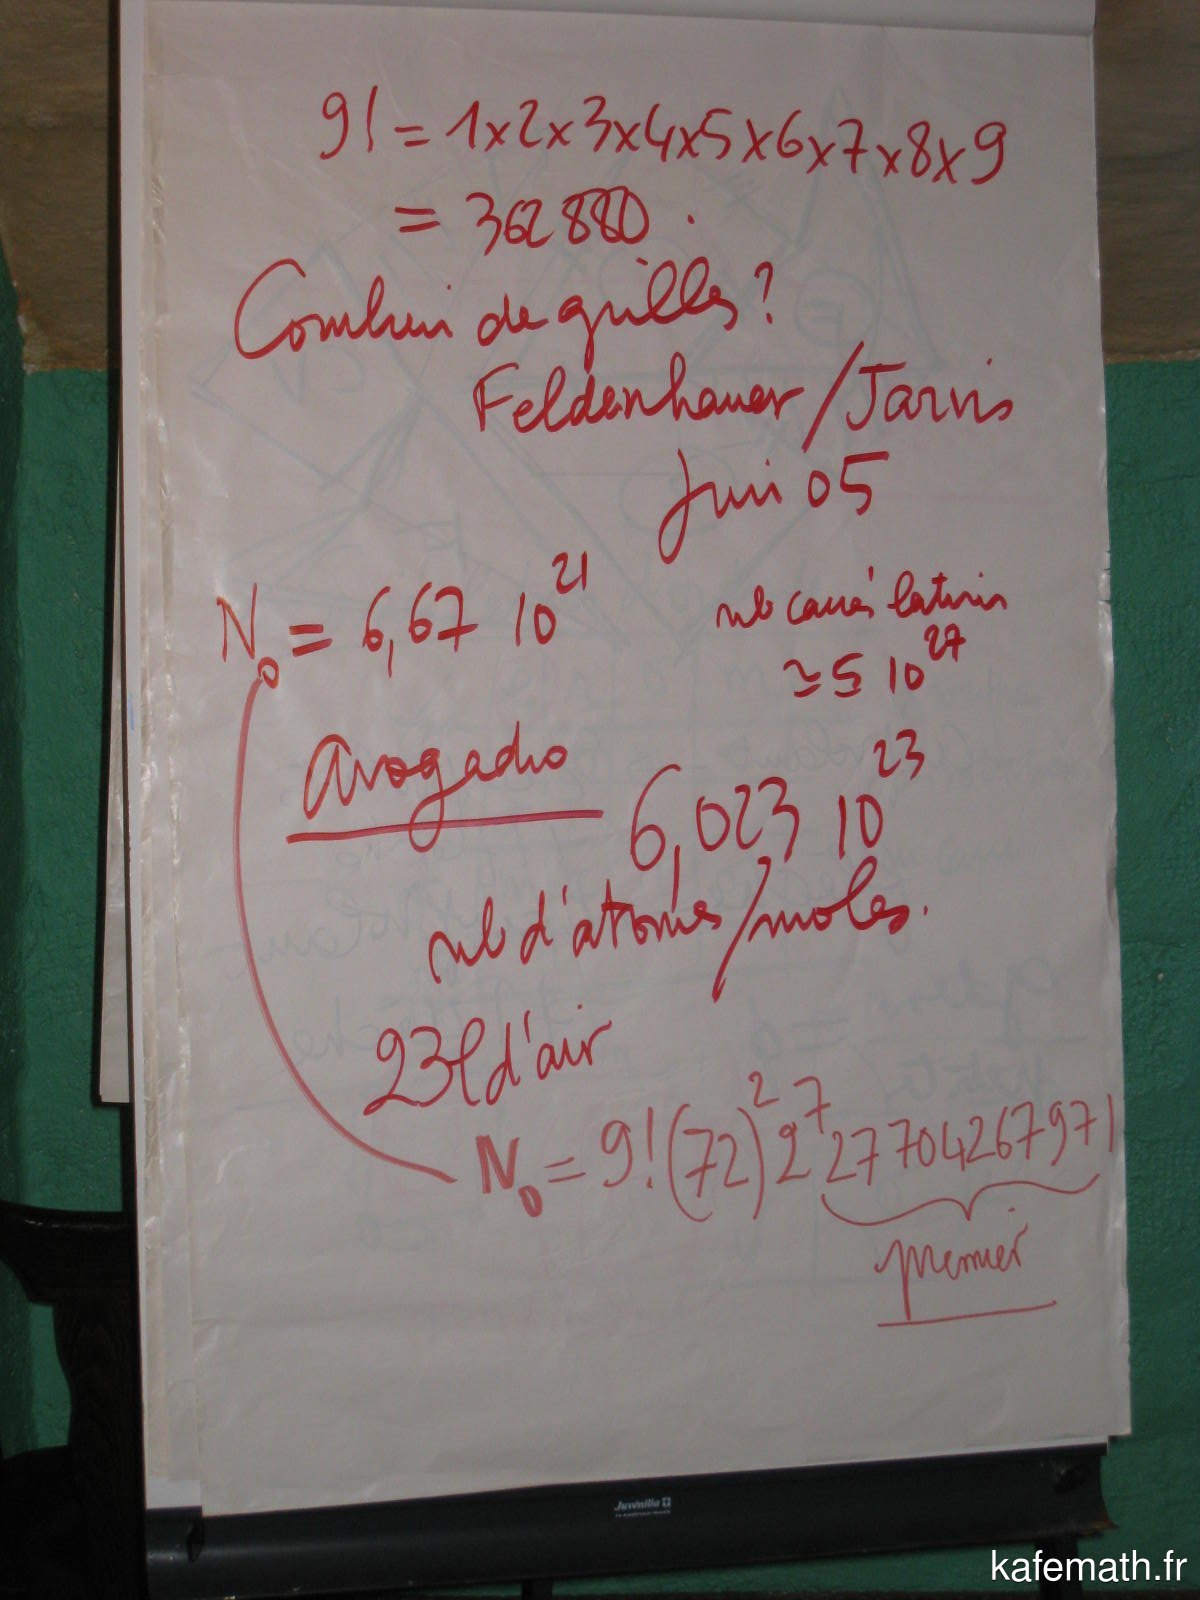 9! = 1x2x3x4x5x6x7x8x9
= 362880.
Combien de grilles?
Feldenhauer/Jarvis
Juin 05
N₀ = 6,67 10²¹
nb carrés latins
≃ 5 10²⁷
avogadro
6,023 10²³
nb d'atomes/moles.
23l d'air
N₀ = 9! (72)² 2⁷ 27704267971
premier
Juvenilia
kafemath.fr